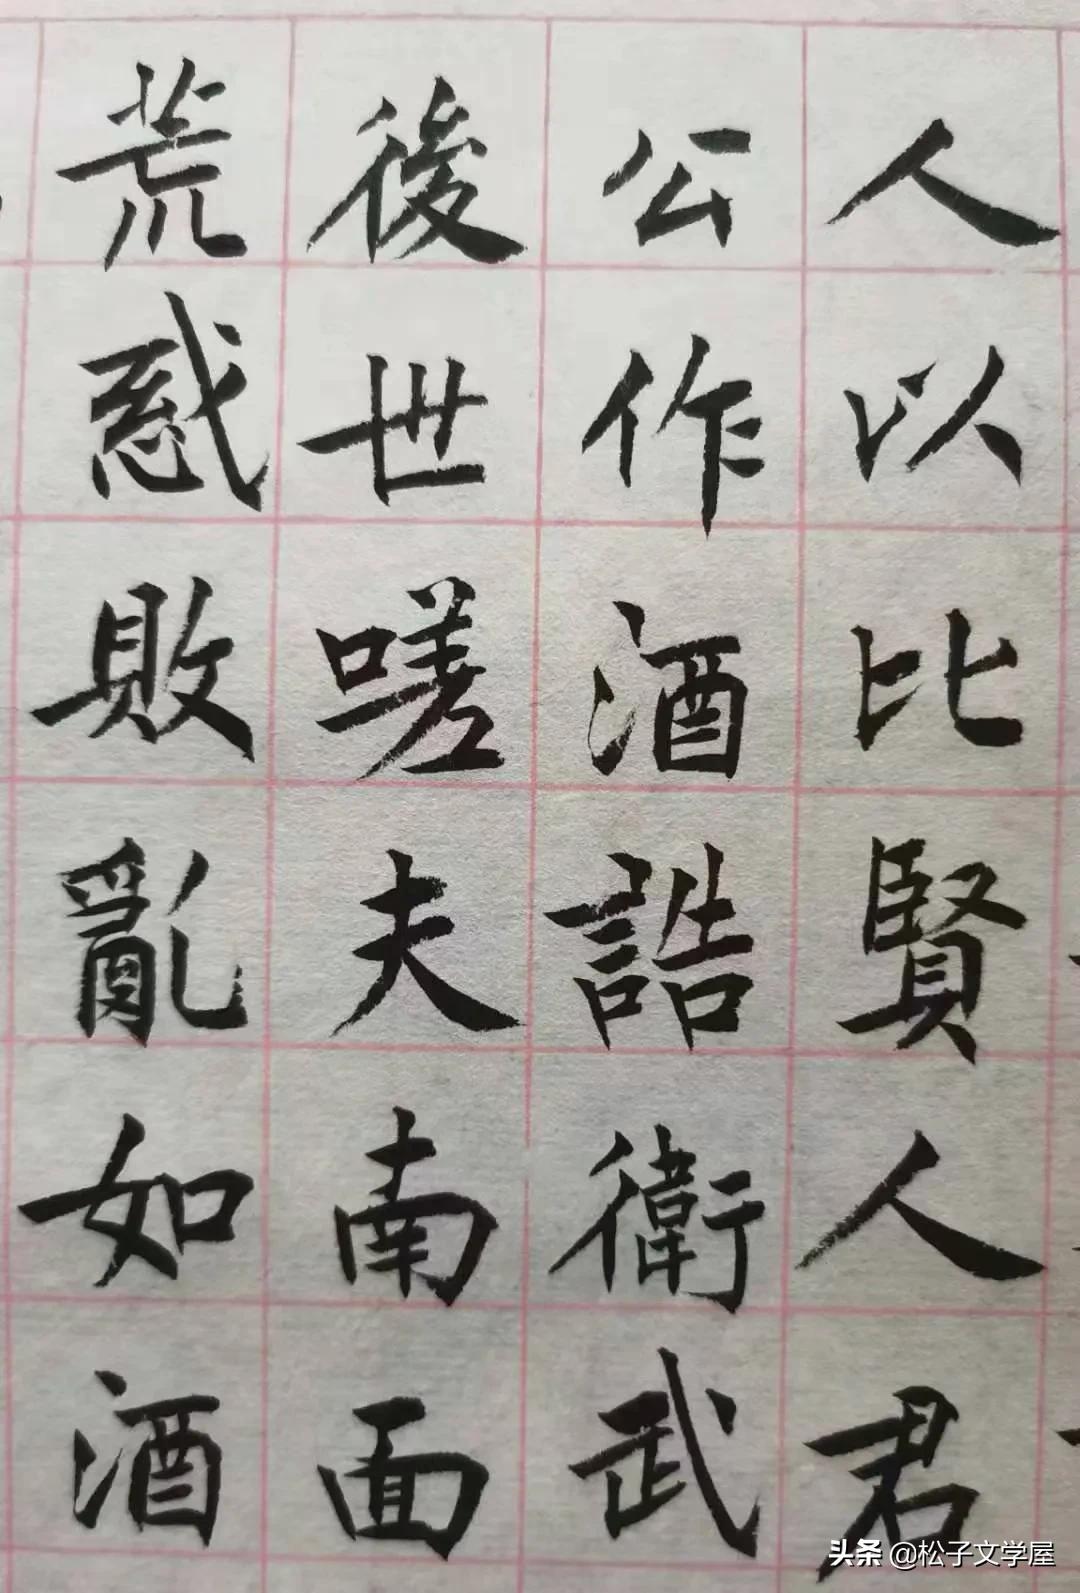 人以比賢人君
公作酒誥衛武
後世嗟夫南面
荒惑敗亂如酒
头条 @松子文学屋